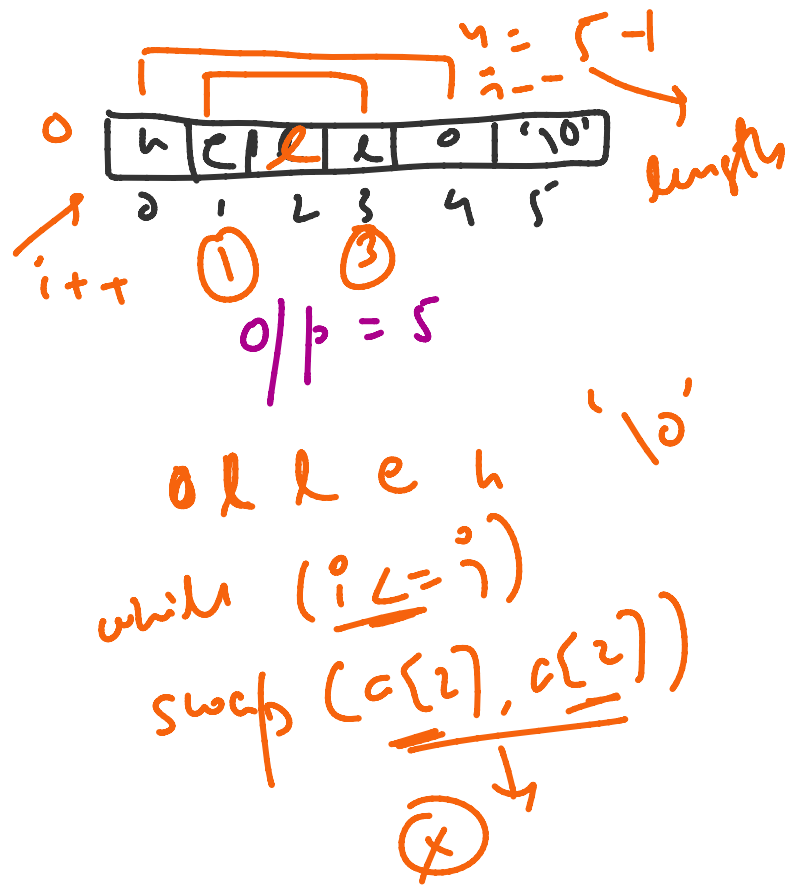 4 = 5 - 1
j--
length
0 h e l l o '\0'
0 1 2 3 4 5
i++ 1 3
o/p = 5
'\0'
o l l e h
while (i <= j)
swap (a[2], a[2])
x